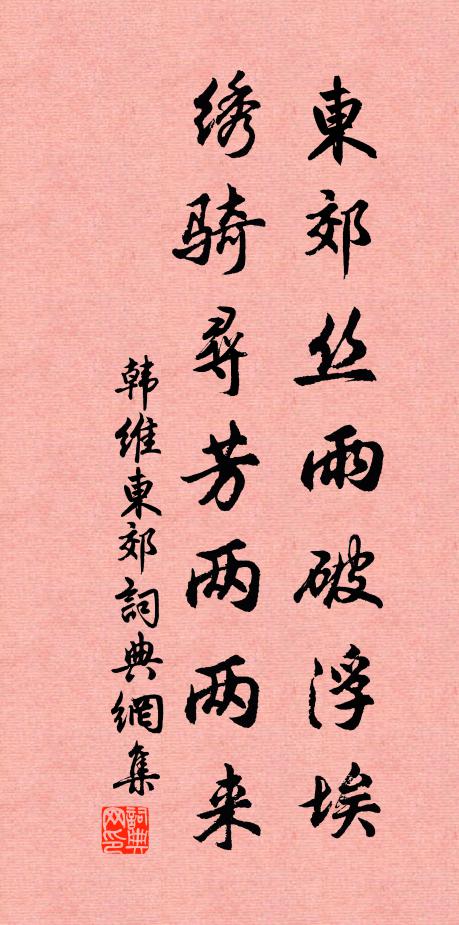 東郊丝雨破浮埃
绣骑尋芳两两来
韩维東郊詞典網集
詞典
网印